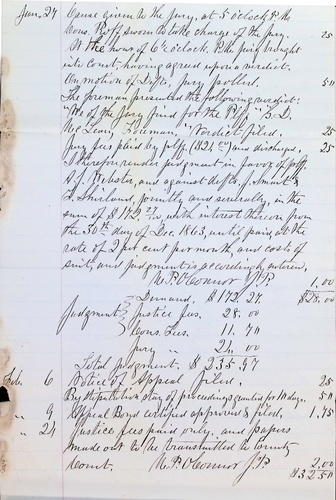 Jan. 27 Cause given to the Jury, at 5 o'clock P.M.
Cons Roff sworn to take charge of the jury. 25
At the hour of 6 o'clock P.M. jury brought
into Court, having agreed upon a verdict.
On motion of Defts, Jury polled. 50
The foreman presented the following verdict:
"We of the Jury find for the Plff" S.D.
McLean, Foreman." Verdict filed. 25
Jury fees paid by plff. ($24.00) and discharged. 25
I therefore render judgment in favor of plff.
Webster, and against defts. J. Smart &
L. Shirland, jointly and severally, in the
sum of $172 27/100, with interest thereon from
the 30th day of Dec. 1863, until paid, at the
rate of 2 per cent per month, and costs of
suit, and judgment is accordingly entered,
M. P. O'Connor J.P. 1.00
Demand, $172.27. $28.00
Judgment Justice fees 28.00
Cons fees. 11.70
Jury " 24.00
Total judgment. $235.97
Feb. 6 Notice of Appeal filed. 25
By stipulation stay of proceedings granted for 10 days. 50
" 9 Appeal Bond certified approved & filed. 1.75
" 24 Justice fees paid only, and papers
made out to be transmitted to County
Court. M. P. O'Connor J.P. 2.00
$32.50